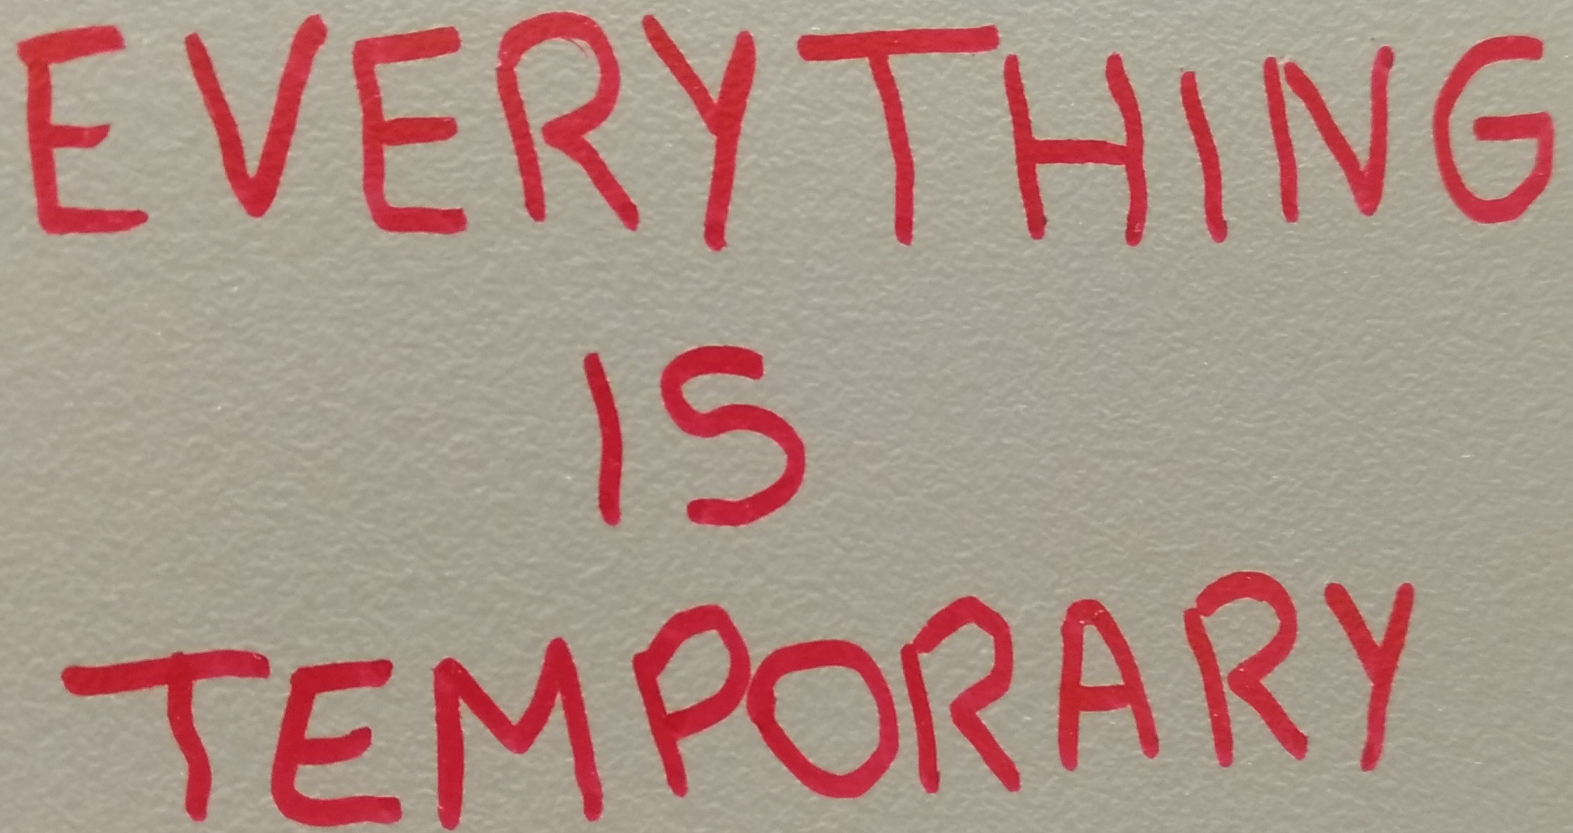 EVERYTHING
IS
TEMPORARY